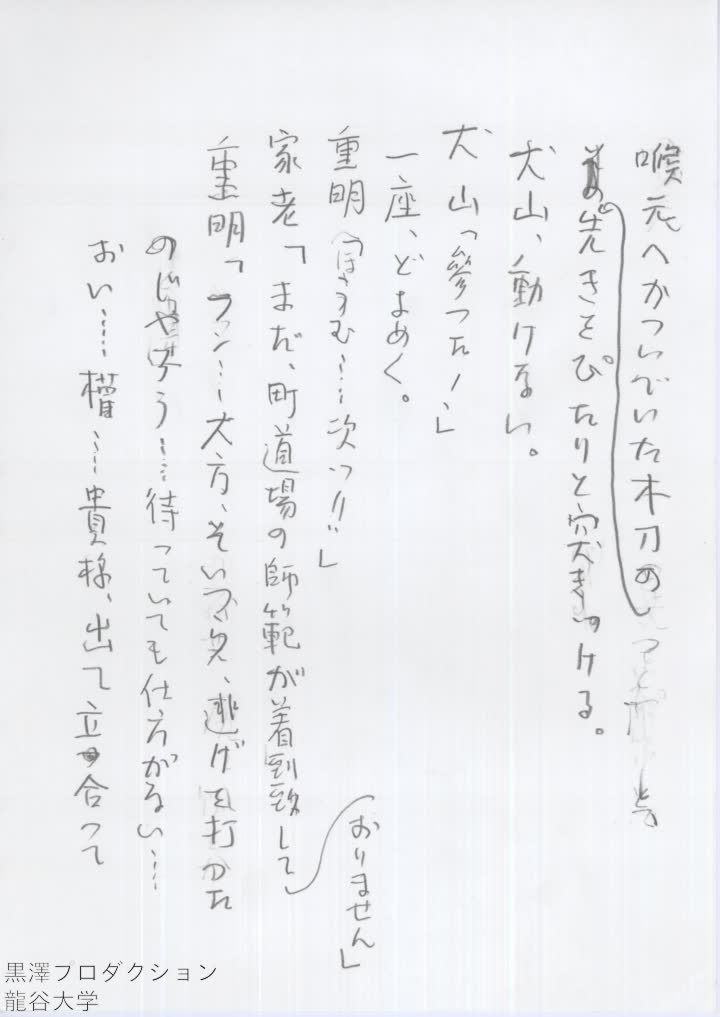 喉元へかついでいた木刀の
先きをぴたりと突きつける。
犬山、動けない。
犬山「參つた！」
一座、どよめく。
重明「ほうむ……次ッ‼」
家老「まだ、町道場の師範が着到致して
おりません」
重明「フン……大方、そいつマタ、逃げを打つた
のじやろう……待っていても仕方がない……
おい……權……貴様、出て立合つて
黒澤プロダクション
龍谷大学